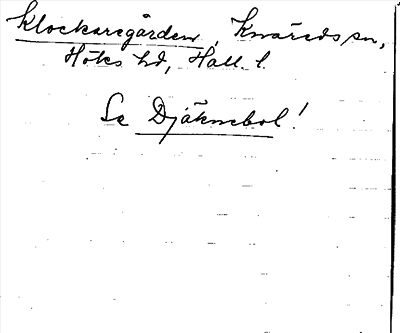 Klockaregården, Knäreds sn,
Höks hd, Hall. l.
Se Djäknebol!